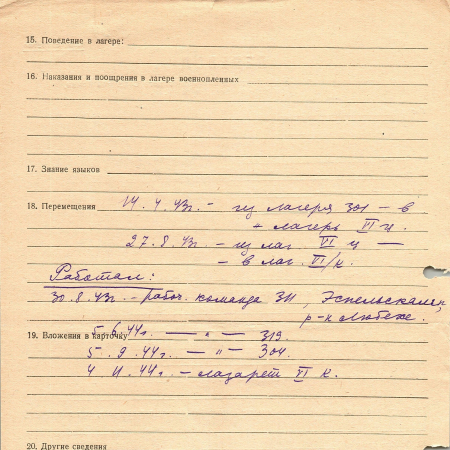 15. Поведение в лагере:
16. Наказания и поощрения в лагере военнопленных
17. Знание языков
18. Перемещения 14.4.43г. - из лагеря 301 - в
+ лагерь VI ц.
27.8.43г - из лаг. VI ц —
- в лаг. VI/к.
Работал:
30.8.43г. - рабоч. команда 311, Эспельскамен,
р-н Любеке.
19. Вложения в карточку 5.6.44г. — " — 319.
5.9.44г. — " — 304.
4 11.44г. - лазарет VI К.
20. Другие сведения